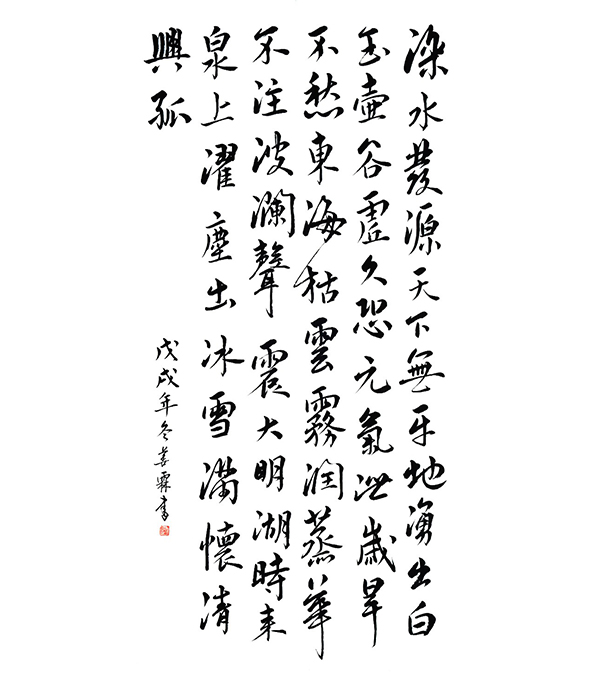 濼水發源天下無平地湧出白
玉壺谷虛久恐元氣泄歲旱
不愁東海枯雲霧潤蒸華
不注波瀾聲震大明湖時來
泉上濯塵土冰雪滿懷清
興孤
戊戌年冬姜霖書